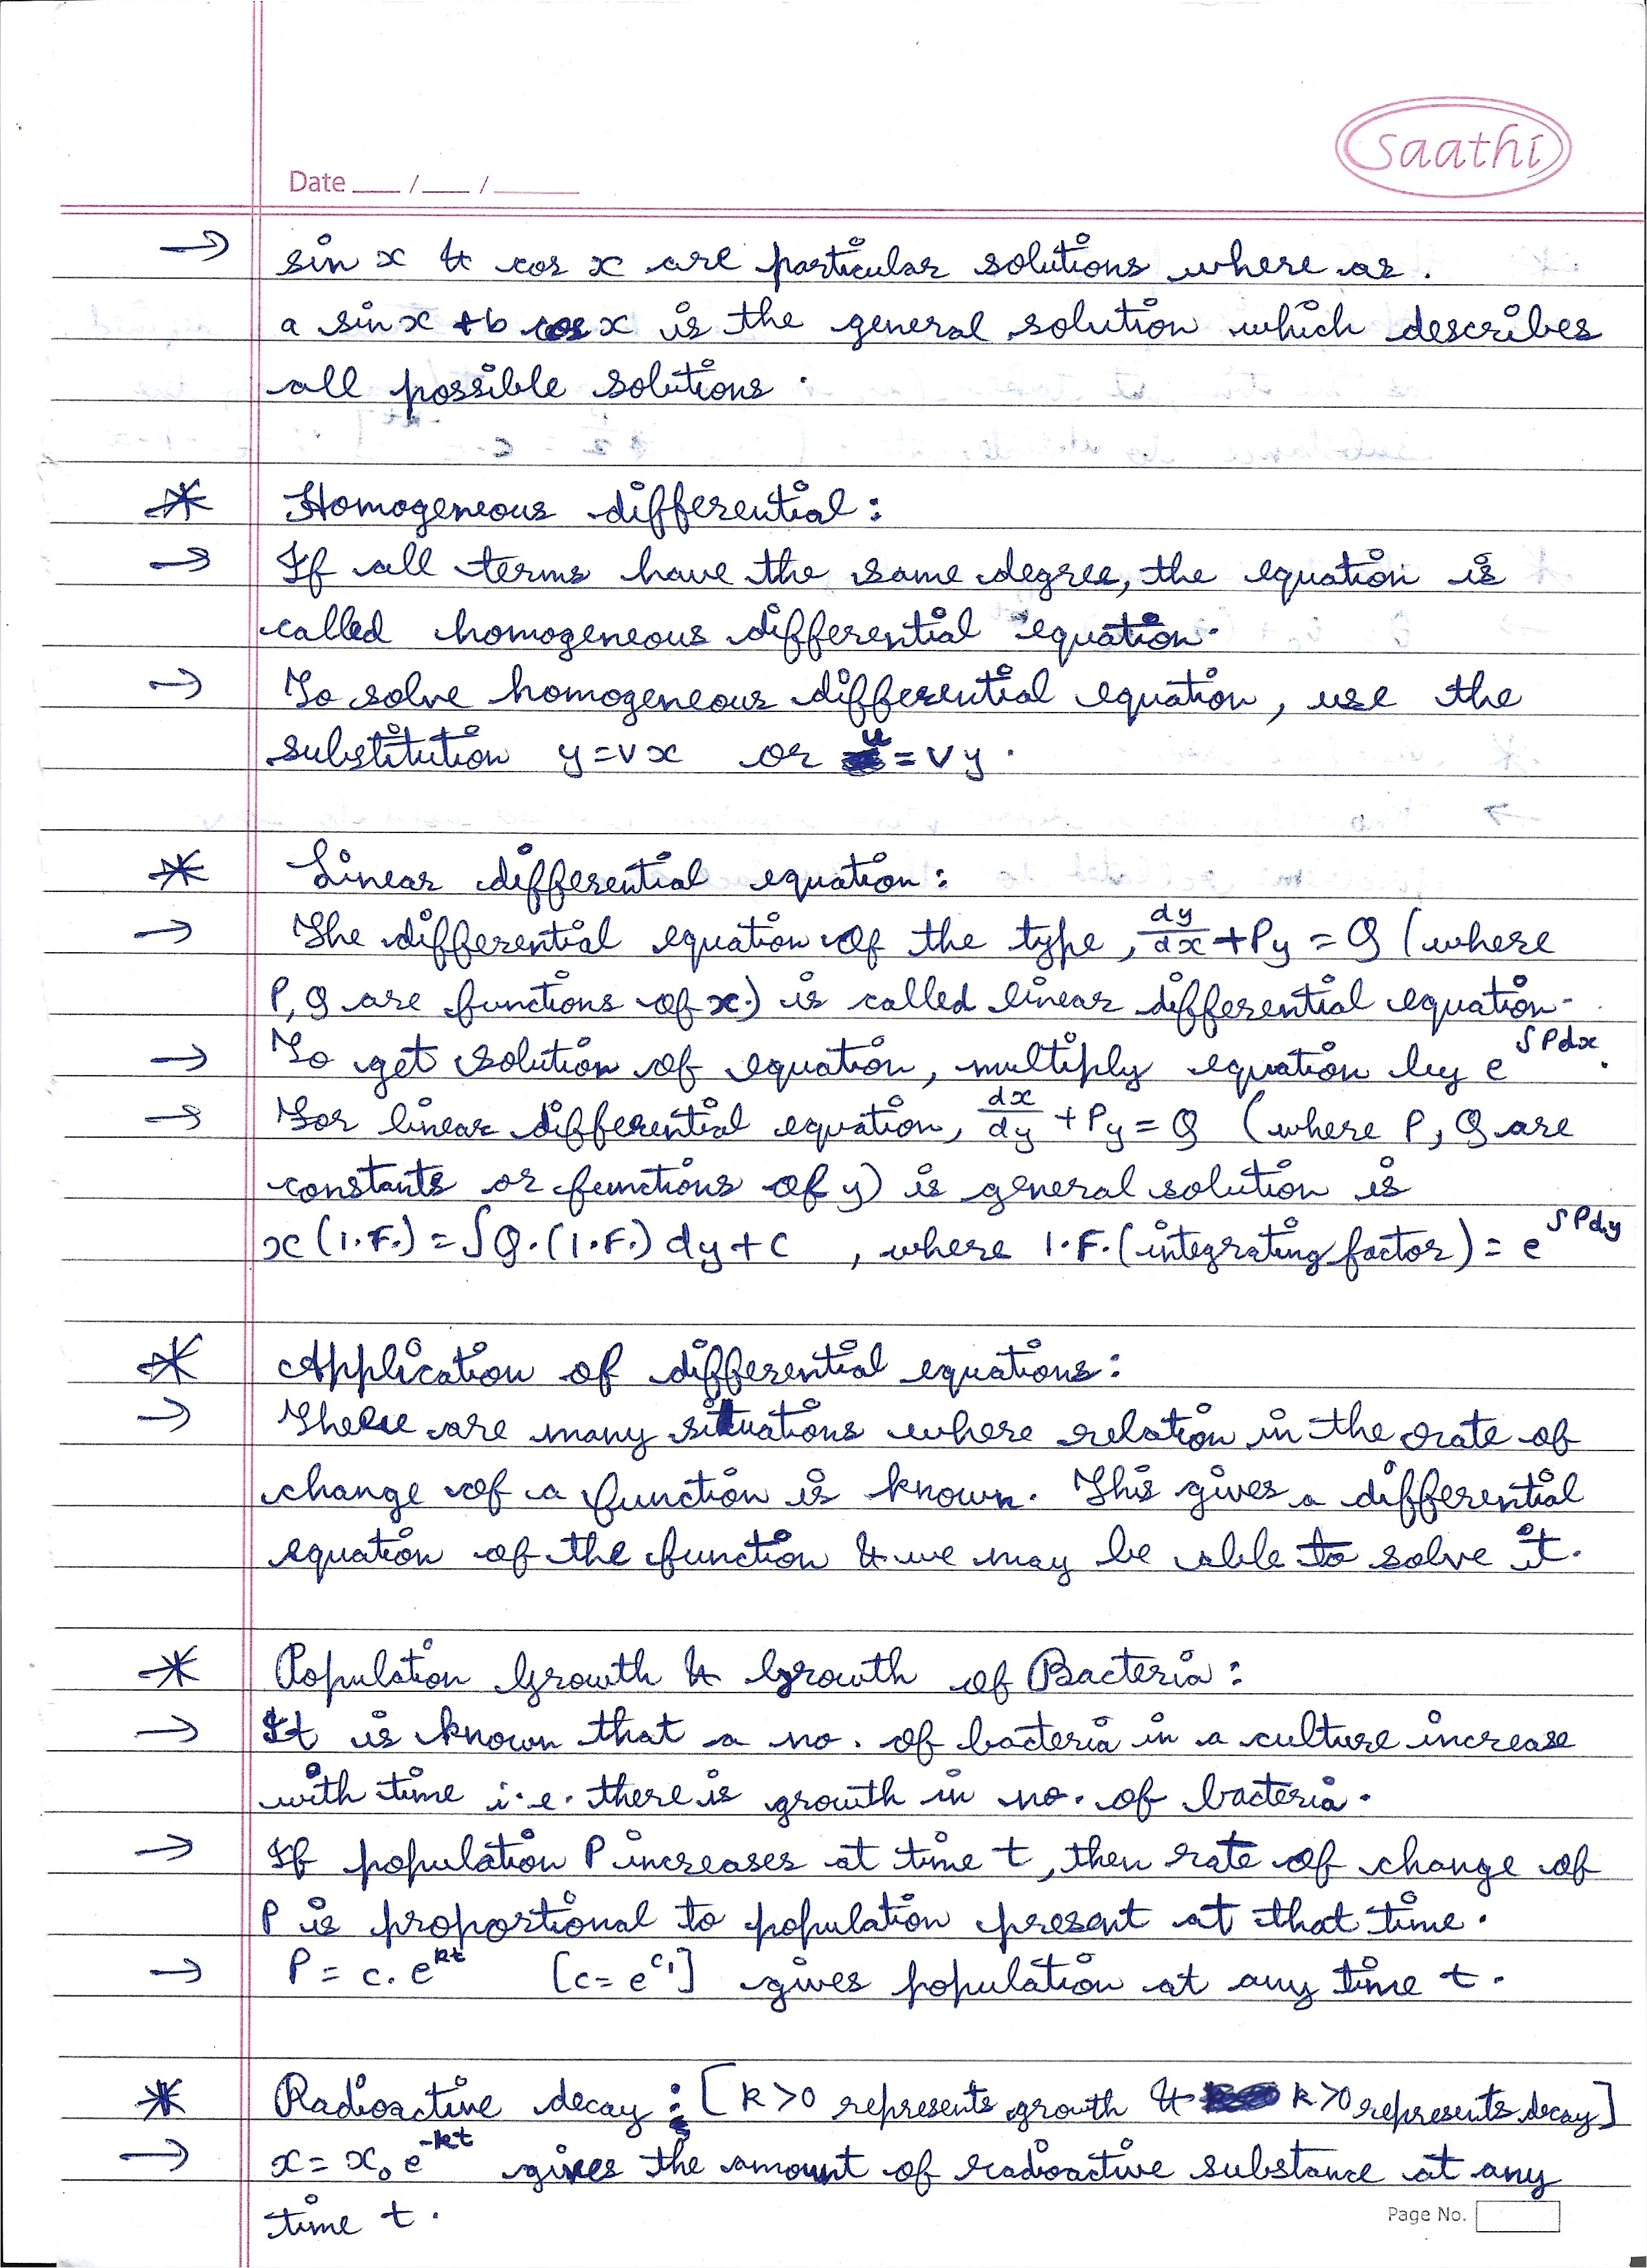 saathi
Date ___ / ___ / ______
→ sin x & cos x are particular solutions where as .
a sin x + b cos x is the general solution which describes
all possible solutions .
* Homogeneous differential :
→ If all terms have the same degree, the equation is
called homogeneous differential equation.
→ To solve homogeneous differential equation, use the
substitution y = vx or = vy .
* Linear differential equation :
→ The differential equation of the type, dy/dx + Py = Q (where
P, Q are functions of x.) is called linear differential equation.
→ To get solution of equation, multiply equation by e^∫Pdx .
→ For linear differential equation, dx/dy + Py = Q (where P, Q are
constants or functions of y) is general solution is
x (I.F.) = ∫Q.(I.F.) dy + c , where I.F. (integrating factor) = e^∫Pdy
* Application of differential equations :
→ There are many situations where relation in the rate of
change of a function is known. This gives a differential
equation of the function & we may be able to solve it.
* Population Growth & Growth of Bacteria :
→ It is known that a no. of bacteria in a culture increase
with time i.e. there is growth in no. of bacteria.
→ If population P increases at time t, then rate of change of
P is proportional to population present at that time.
→ P = c. e^kt [c = e^c₁] gives population at any time t.
* Radioactive decay : [k >0 represents growth & k >0 represents decay]
→ x = x₀ e^-kt gives the amount of radioactive substance at any
time t .
Page No.